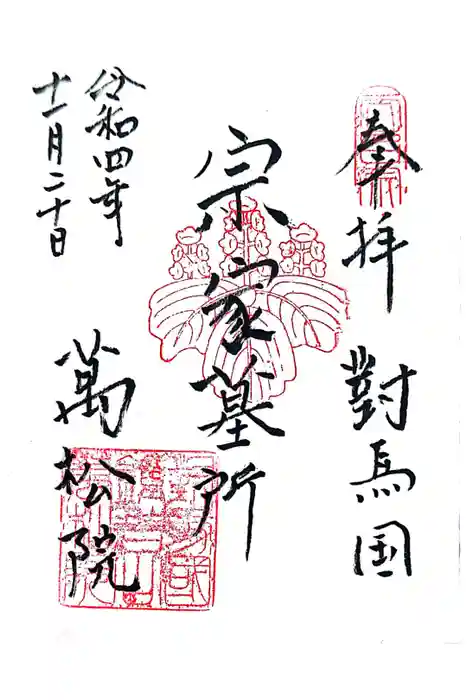 奉拝
對馬国
宗家墓所
令和四年
十一月二十日
萬松院